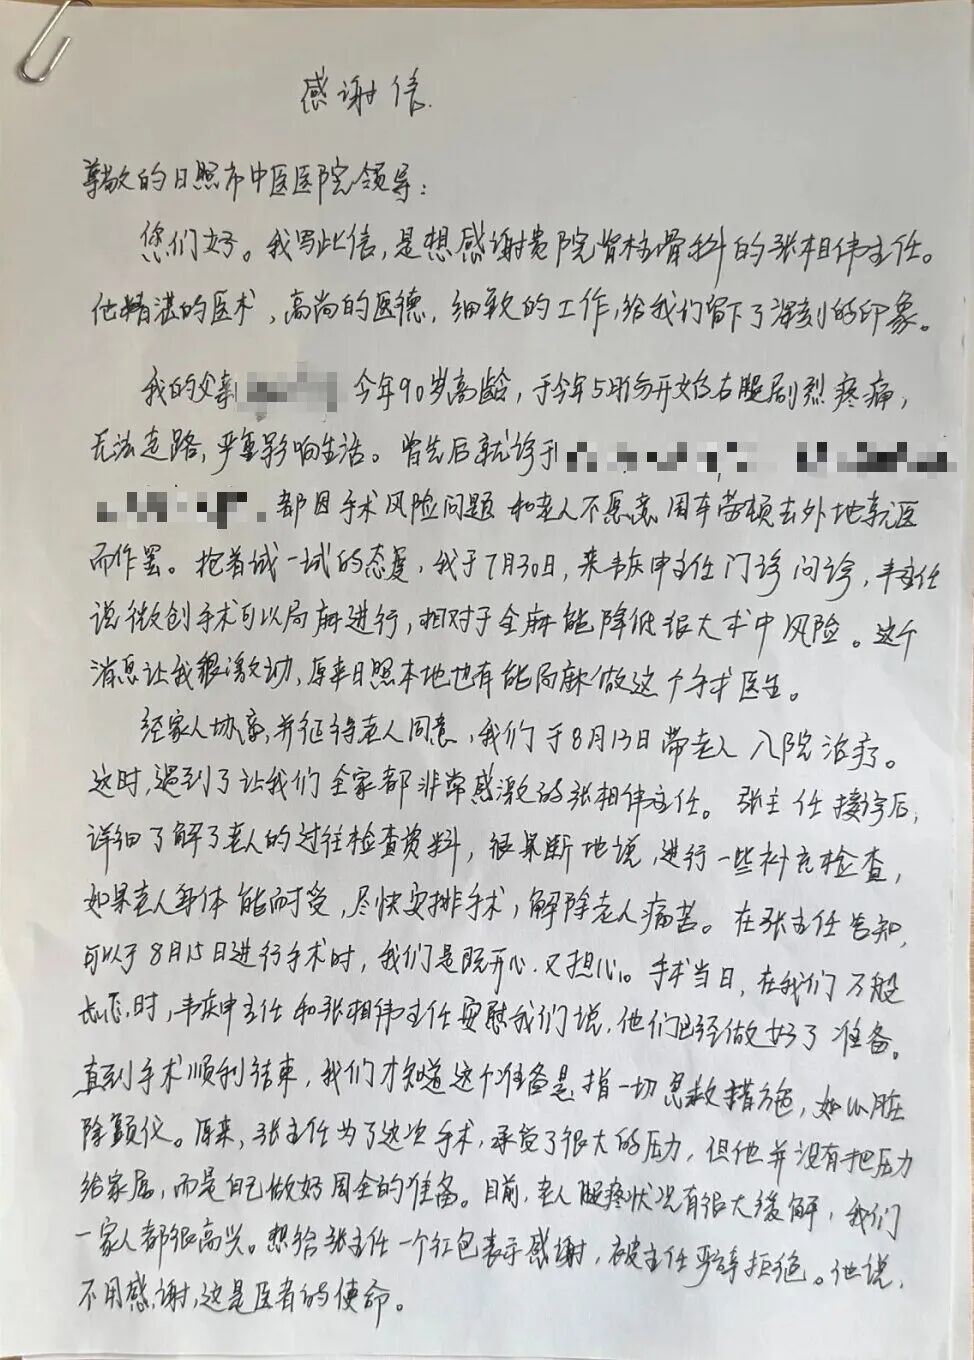 感谢信
尊敬的日照市中医医院领导：
您们好。我写此信，是想感谢贵院脊柱骨科的张相伟主任。
他精湛的医术，高尚的医德，细致的工作，给我们留下了深刻的印象。
我的父亲 今年90岁高龄，于今年5月份开始右腿剧烈疼痛，
无法走路，严重影响生活。曾先后就诊于
，都因手术风险问题和老人不愿意周车劳顿去外地就医
而作罢。抱着试一试的态度，我于7月30日，来韦庆申主任门诊问诊，韦主任
说微创手术可以局麻进行，相对于全麻能降低很大术中风险。这个
消息让我很激动，原来日照本地也有能局麻做这个手术医生。
经家人协商，并征得老人同意，我们于8月13日带老人入院治疗。
这时，遇到了让我们全家都非常感激的张相伟主任。张主任接诊后，
详细了解了老人的过往检查资料，很果断地说，进行一些补充检查，
如果老人身体能耐受，尽快安排手术，解除老人痛苦。在张主任告知，
可以于8月15日进行手术时，我们是既开心又担心。手术当日，在我们万般
忐忑时，韦庆申主任和张相伟主任安慰我们说，他们已经做好了准备。
直到手术顺利结束，我们才知道这个准备是指一切急救措施，如心脏
除颤仪。原来，张主任为了这次手术，承受了很大的压力，但他并没有把压力
给家属，而是自己做好周全的准备。目前，老人腿疼状况有很大缓解，我们
一家人都很高兴。想给张主任一个红包表示感谢，被主任严辞拒绝。他说，
不用感谢，这是医者的使命。